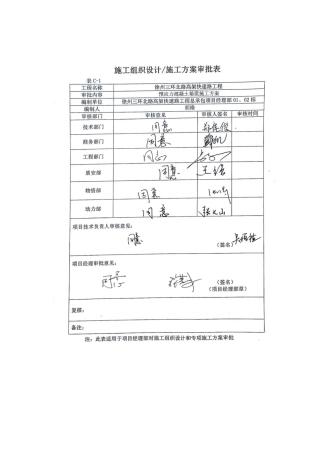 施工组织设计/施工方案审批表
表 C-1
工程名称 徐州三环北路高架快速路工程
审批内容 预应力混凝土箱梁施工方案
编制单位 徐州三环北路高架快速路工程总承包项目经理部 01、02 标
审核部门 审核意见 审核人签名 审核时间
技术部门 同意
商务部门 同意
工程部门 同意
质安部 同意
物资部 同意
动力部 同意
项目技术负责人审核意见：
同意
（签名）
项目经理审批意见：
同意
（签名）
（项目经理部章）
复部：
备注：
注：此表适用于项目经理部对施工组织设计和专项施工方案审批